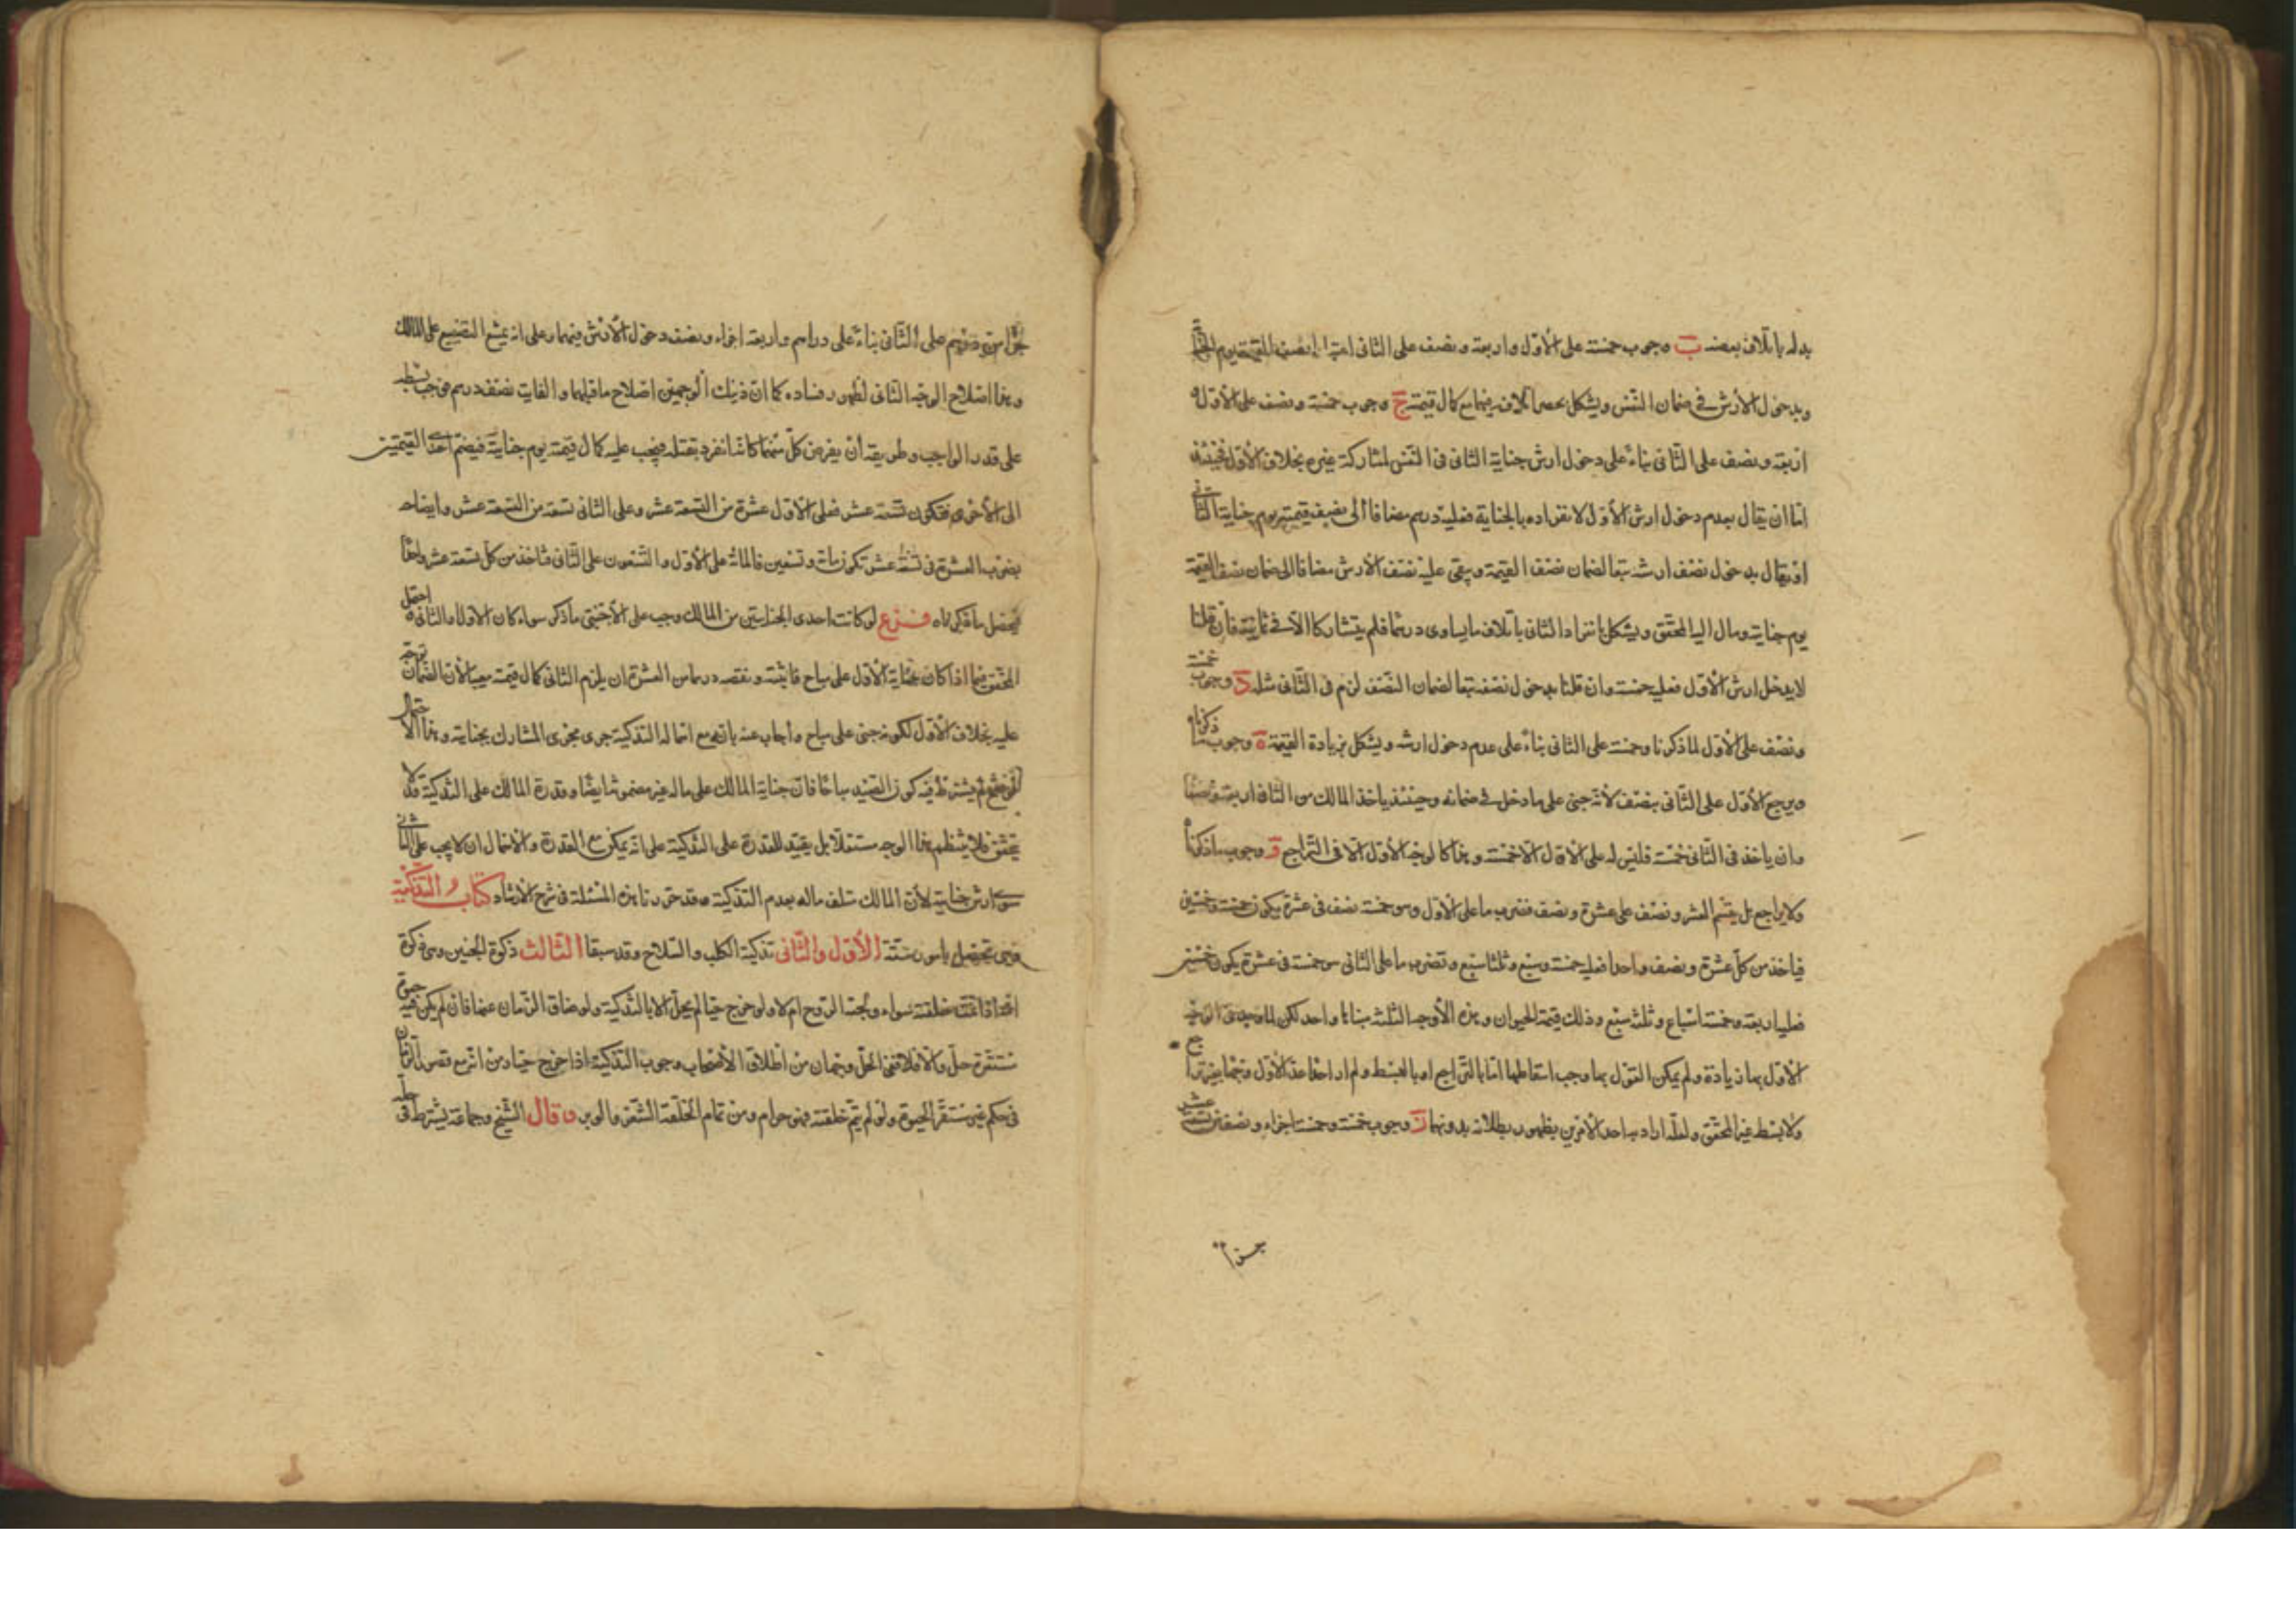 بدله باتلاف بعضه ب وجوب خمسة على الأول واربعة ونصف على الثانى اعتبارا بنصف القيمة يوم الجناية
وبدخول الأرش فى ضمان النفس ويشكل بحصر اتلافه فيهما مع كمال قيمته ج وجوب خمسة ونصف على الأول و
اربعة ونصف على الثانى بناء على دخول ارش جناية الثانى فى النفس لمشاركة غيره بخلاف الأول فحينئذ
اما ان يقال بعدم دخول ارش الأول لانفراده بالجناية فعليه درهم مضافا الى نصف قيمته يوم جناية الثانى
او يقال بدخول نصف ارشه تبعا لضمان نصف القيمة ويبقى عليه نصف الأرش مضافا الى ضمان نصف القيمة
يوم جنايته ومال اليه المحقق ويشكل بانفراد الثانى باتلاف ما يساوى درهما فلم يتشاركا الا فى ثمانية فان قلنا
لا يدخل ارش الأول فعليه خمسة وان قلنا بدخول نصفه تبعا لضمان النصف لزم فى الثانى مثله د وجوب خمسة
ونصف على الأول لما ذكرنا وخمسة على الثانى بناء على عدم دخول ارشه ويشكل بزيادة القيمة ه وجوب ما ذكرناه
ويرجع الأول على الثانى بنصف لأنه جنى على ما دخل فى ضمانه وحينئذ ياخذ المالك من الثانى اربعة ونصفا
وان ياخذ فى الثانى خمسة فليس له على الأول الا خمسة وهذا كالوجه الأول الا فى التراجع و وجوب ما ذكرناه
ولا يراجع بل يقسم العشر ونصف على عشرة ونصف فنضرب ما على الأول وهو خمسة نصف فى عشرة يكون خمسة وخمسين
فياخذ من كل عشرة ونصف واحدا فعليه خمسة وسبع وثلثا سبع وتضرب ما على الثانى هو خمسة فى عشرة يكون خمسين
فعليه اربعة وخمسة اسباع وثلث سبع وذلك قيمة الحيوان وهذه الأوجه الثلثة بناها واحد لكن لما وجد فى الوجه
الأول بها زيادة ولم يمكن القول بها وجب اسقاطها اما بالتراجع او بالبسط ولم ار احدا عد الأول وجها بغير تراجع
ولا بسط غير المحقق ولعله اراد به احد الأمرين بظهور بطلانه بدونهما ز وجوب خمسة وخمسة اجزاء ونصف من تسعة عشر
جزأ من درهم على الثانى بناء على دراهم واربعة اجزاء ونصف دخول الأرش فيهما وعلى انه يمتنع التضييع على المالك
وهذا اصلاح الوجه الثانى لظهور فساده كما ان ذينك الوجهين اصلاح ما قبلهما والفايت نصف درهم فوجب بسطه
على قدر الواجب وطريقه ان يفرض كل منهما كانه انفرد بقتله فيجب عليه كمال قيمته يوم جناية فيضم احدى القيمتين
الى الأخرى فتكون تسعة عشر فعلى الأول عشرة من التسعة عشر وعلى الثانى تسعة من التسعة عشر وايضاحه
بضرب العشرة فى تسعة عشر تكون مائة وتسعين فالمائة على الأول والتسعون على الثانى فتاخذ من كل تسعة عشر واحدا
يحصل ما ذكرناه فرع لو كانت احدى الجنايتين من المالك وجب على الأجنبى ما ذكر سواء كان الأول او الثانى و احتمل
المحقق فيما اذا كان جناية الأول على مباح فاثبته ونقصه درهما من العشرة ان يلزم الثانى كمال قيمته معيبا لأن الضمان توجه
عليه بخلاف الأول لكونه جنى على مباح واجاب عنه بانه مع اهماله التذكية جرى مجرى المشارك بجنايته وهذا الاحتمال
لو صح لم يشترط فيه كون الصيد مباحا فان جناية المالك على ماله غير مضمونة ايضا وقدرة المالك على التذكية قد لا
يتحقق فلا ينتظم هذا الوجه مستقلا بل يقيد للقدرة على التذكية على انه يمكن مع القدرة والاهمال ان لا يجب على الثانى
سوى ارش جنايته لأن المالك متلف ماله بعدم التذكية وقد حررنا هذه المسئلة فى شرح الارشاد كتاب التذكية
وهى تحصل بامور ستة الأول والثانى تذكية الكلب والسلاح وقد سبقا الثالث ذكوة الجنين وهى ذكوة
امه اذا تمت خلقته سواء ولجته الروح ام لا ولو خرج حيا لم يحل الا بالتذكية ولو ضاق الزمان عنها فان لم يكن فيه حيوة
مستقرة حل والا فلا ففى الحل وجهان من اطلاق الأصحاب وجوب التذكية اذا خرج حيا ومن انه مع قصور الزمان
فى حكم غير مستقر الحيوة ولو لم يتم خلقته فهو حرام ومن تمام الخلقة الشعر والوبر و قال الشيخ وجماعة يشترط فى حله
جزأ من